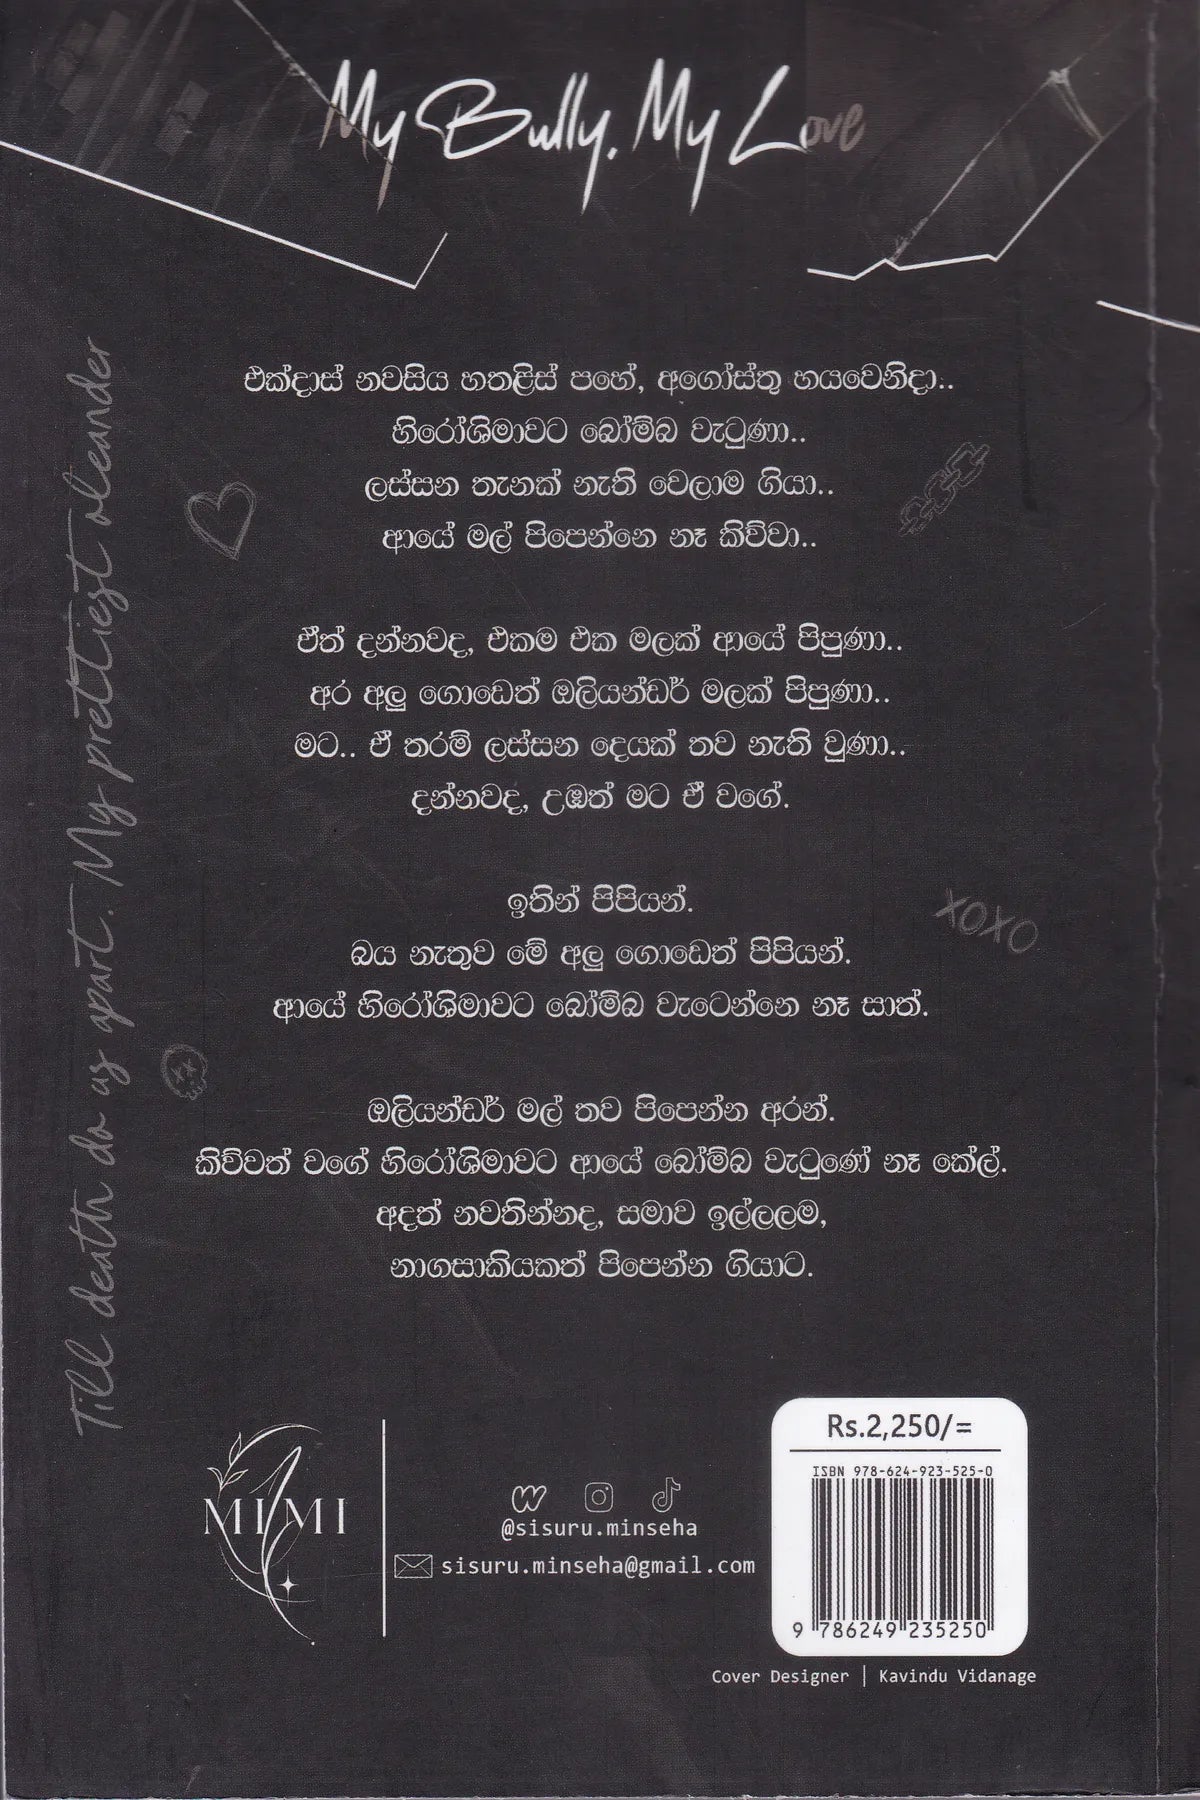 My Bully, My Love
එක්දාස් නවසිය හතළිස් පහේ, අගෝස්තු හයවෙනිදා..
හිරෝශිමාවට බෝම්බ වැටුණා..
ලස්සන තැනක් නැති වෙලාම ගියා..
ආයේ මල් පිපෙන්නෙ නෑ කිව්වා..
ඒත් දන්නවද, එකම එක මලක් ආයේ පිපුණා..
අර අලු ගොඩෙත් ඔලියන්ඩර් මලක් පිපුණා..
මට.. ඒ තරම් ලස්සන දෙයක් තව නැති වුණා..
දන්නවද, උඹත් මට ඒ වගේ.
ඉතින් පිපියන්.
බය නැතුව මේ අලු ගොඩෙත් පිපියන්.
ආයේ හිරෝශිමාවට බෝම්බ වැටෙන්නෙ නෑ සාත්.
ඔලියන්ඩර් මල් තව පිපෙන්න අරන්.
කිව්වත් වගේ හිරෝශිමාවට ආයේ බෝම්බ වැටුණේ නෑ කේල්.
අදත් නවතින්නද, සමාව ඉල්ලලම,
නාගසාකියකත් පිපෙන්න ගියාට.
Till death do us apart. My prettiest oleander
XOXO
MIMI
@sisuru.minseha
sisuru.minseha@gmail.com
Rs.2,250/=
ISBN 978-624-923-525-0
9 786249 235250
Cover Designer | Kavindu Vidanage